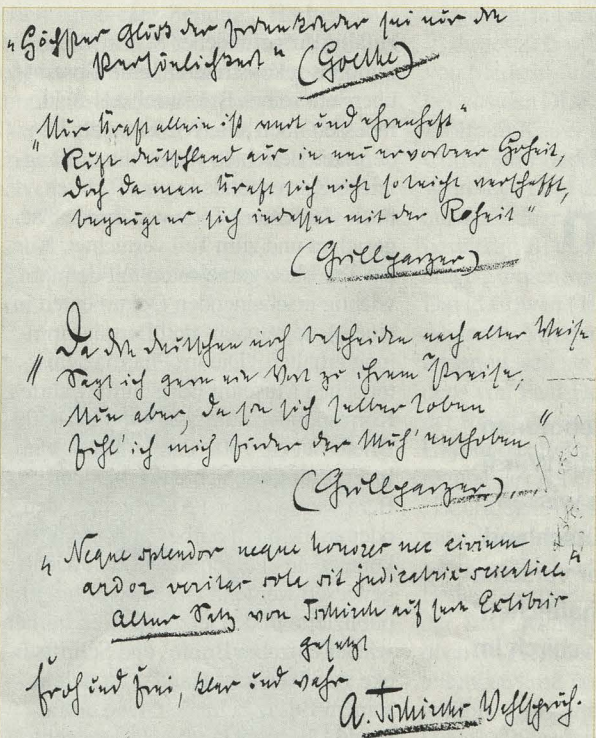 "Höchstes Glück der Erdenkinder sei nur die
Persönlichkeit" (Goethe)
"Nur Kraft allein ist wert und ehrenhaft"
Ruft Deutschland aus in neu erworbner Hoheit,
Doch da man Kraft sich nicht so leicht verschafft,
begnügt er sich indessen mit der Roheit"
(Grillparzer)
"Da die Deutschen noch bescheiden nach alter Weise
Sagt ich gern ein Wort zu ihrem Preise,
Nun aber, da sie sich selber loben
Fühl' ich mich der Müh' enthoben"
(Grillparzer)
"Neque splendor neque honores nec civium
ardor veritas sola sit judicatrix scientiae"
Alter Satz von Tschirch auf sein Exlibris
gesetzt
Froh und frei, klar und wahr
A. Tschirchs Wahlspruch.